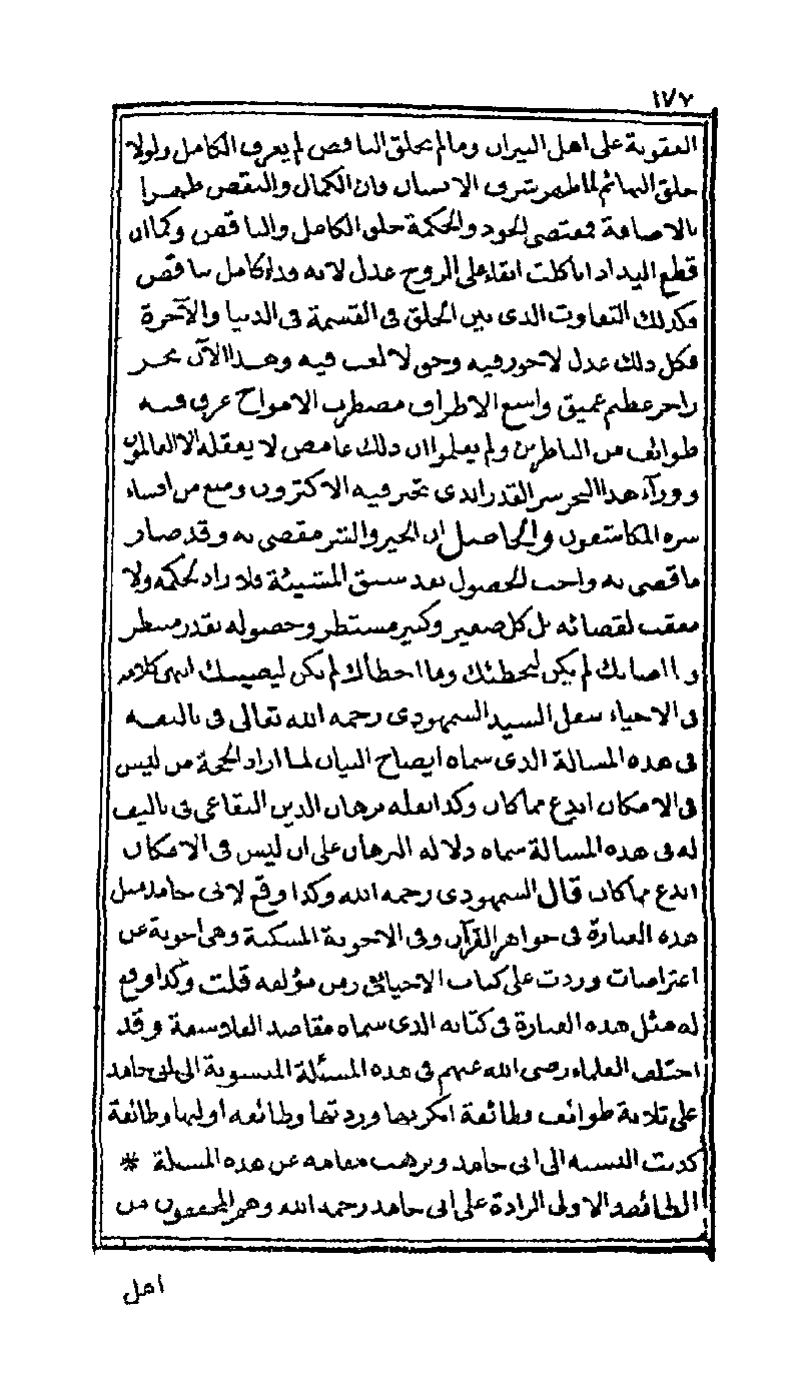 ١١٧
العقوبة على اهل النيران وما لم يخلق الناقص لم يعرف الكامل ولولا
خلق البهائم لما ظهر شرف الانسان فان الكمال والنقص ظهرا
بالاضافة فمقتضى الجود والحكمة خلق الكامل والناقص وكما ان
قطع اليد اذا تاكلت ابقاء على الروح عدل لانه فداء كامل بناقص
فكذلك التفاوت الذى بين الخلق فى القسمة فى الدنيا والآخرة
فكل ذلك عدل لا جور فيه وحق لا لعب فيه وهذا الآن بحر
زاخر عظيم عميق واسع الاطراف مضطرب الامواج غرق فيه
طوائف من الناظرين ولم يعلموا ان ذلك غامض لا يعقله الا العالمون
وورآء هذا البحر سر القدر الذى تحير فيه الاكثرون ومنع من افشاء
سره المكاشفون والحاصل ان الخير والشر مقضى به وقد صار
ما قضى به واجب الحصول بعد سبق المشيئة فلا راد لحكمه ولا
معقب لقضائه بل كل صغير وكبير مستطر وحصوله بقدر منتظر
وما اصابك لم يكن ليخطئك وما اخطأك لم يكن ليصيبك انتهى كلامه
فى الاحياء بنقل السيد السمهودى رحمه الله تعالى فى تاليفه
فى هذه المسالة الذى سماه ايضاح البيان لما اراد الحجة من ليس
فى الامكان ابدع مما كان وكذا نقله برهان الدين البقاعى فى تاليف
له فى هذه المسالة سماه دلالة البرهان على ان ليس فى الامكان
ابدع مما كان قال السمهودى رحمه الله وكذا وقع لابى حامد مثل
هذه العبارة فى جواهر القرآن وفى الاجوبة المسكتة وهى اجوبة عن
اعتراضات وردت على كتاب الاحيا فى زمن مؤلفه قلت وكذا وقع
له مثل هذه العبارة فى كتابه الذى سماه مقاصد الفلاسفة وقد
اختلف العلماء رضى الله عنهم فى هذه المسئلة المنسوبة الى ابى حامد
على ثلاثة طوائف وطائفة انكرتها وردتها وطائفة اولتها وطائفة
كذبت النسبة الى ابى حامد ونزهت مقامه عن هذه المسالة *
الطائفة الاولى الرادة على ابى حامد رحمه الله وهم المحققون من
اهل